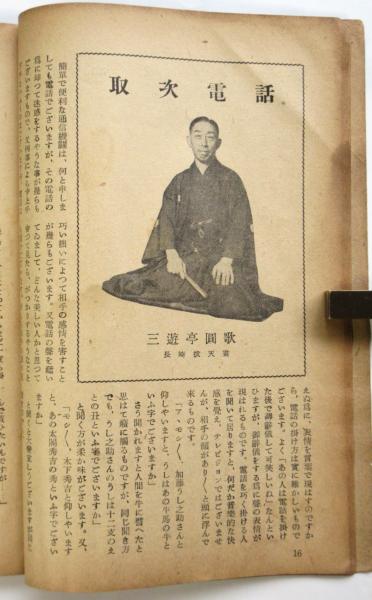 取次電話
三遊亭圓歌
長崎抜天画
簡單で便利な通信機關は、何と申しま
しても電話でございますが、その電話の
爲に却つて迷惑をするやうな事が幾らも
ございますもので、又何事によらず上手
巧い拙いによつて相手の感情を害すこと
が幾らもございます。又電話の聲を聽い
てゐまして、どんな美しい人かと思つて
會つて見たら、がつかりするやうなこと
えぬ爲に、表情を言葉で現はすのですか
ら、電話の掛け方は實に難かしいもので
ございます。よく「あの人は電話を掛け
た後で御辭儀して可笑しいね」なんとい
ひますが、御辭儀をする爲に聲の表情が
現はれるものです。電話を巧く掛ける人
を聞いて居りますと、何だか音樂的な快
感を覺え、テレビジョンではございませ
んが、相手の顔がありくと眼に浮んで
來るものです。
「ア、モシく、加藤うし之助さんと
仰しやいますと、うしはあの牛馬の牛と
いふ字でございますか」
さう聞かれますと人間を牛に譬へたと
思はれて癪に障るものですが、同じ聞き方
でも、うし之助さんのうしは十二支のえ
との丑といふ字でございますか」
と聞く方が柔か味がございます。又、
「モシく、木下秀吉と仰しやいます
と、あの太閤秀吉の秀といふ字でござい
ますね」
16